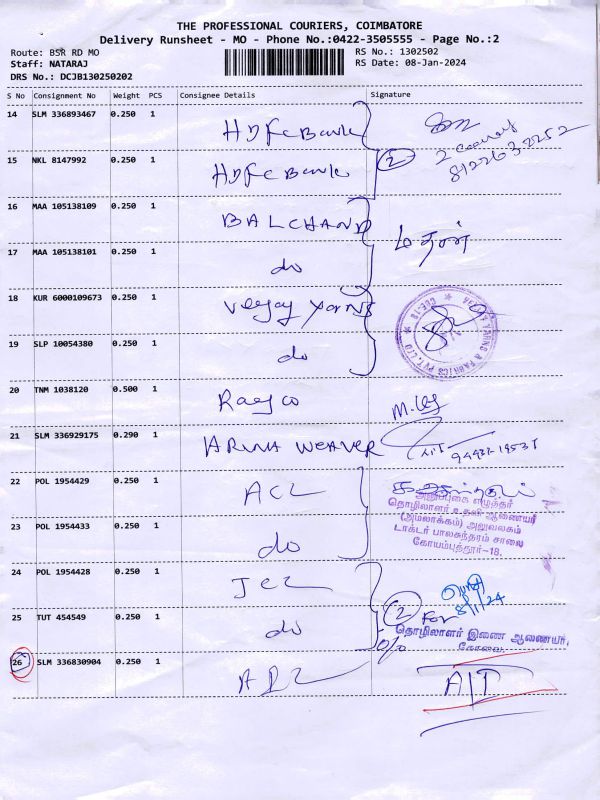 THE PROFESSIONAL COURIERS, COIMBATORE
Delivery Runsheet - MO - Phone No.:0422-3505555 - Page No.:2
Route: BSR RD MO
Staff: NATARAJ
DRS No.: DCJB130250202
RS No.: 1302502
RS Date: 08-Jan-2024
S No Consignment No Weight PCS Consignee Details Signature
14 SLM 336893467 0.250 1 HDFC Bank
2
15 NKL 8147992 0.250 1 HDFC Bank
16 MAA 105138109 0.250 1 BALCHAND
17 MAA 105138101 0.250 1 do
மதன்
18 KUR 6000109673 0.250 1 Veejay Yarns
19 SLP 10054380 0.250 1 do
YARNS & FABRICS PVT. LTD
CBE-18
20 TNM 1038120 0.500 1
21 SLM 336929175 0.290 1 ARUNA WEAVER
22 POL 1954429 0.250 1 ACL
23 POL 1954433 0.250 1 do
அனுப்புகை எழுத்தர்
தொழிலாளர் உதவி ஆணையர்
(அமலாக்கம்) அலுவலகம்
டாக்டர் பாலசுந்தரம் சாலை
கோயம்புத்தூர்-18.
24 POL 1954428 0.250 1 JCL
8/1/24
25 TUT 454549 0.250 1 do
2 For
தொழிலாளர் இணை ஆணையர்,
கோவை
26 SLM 336830904 0.250 1